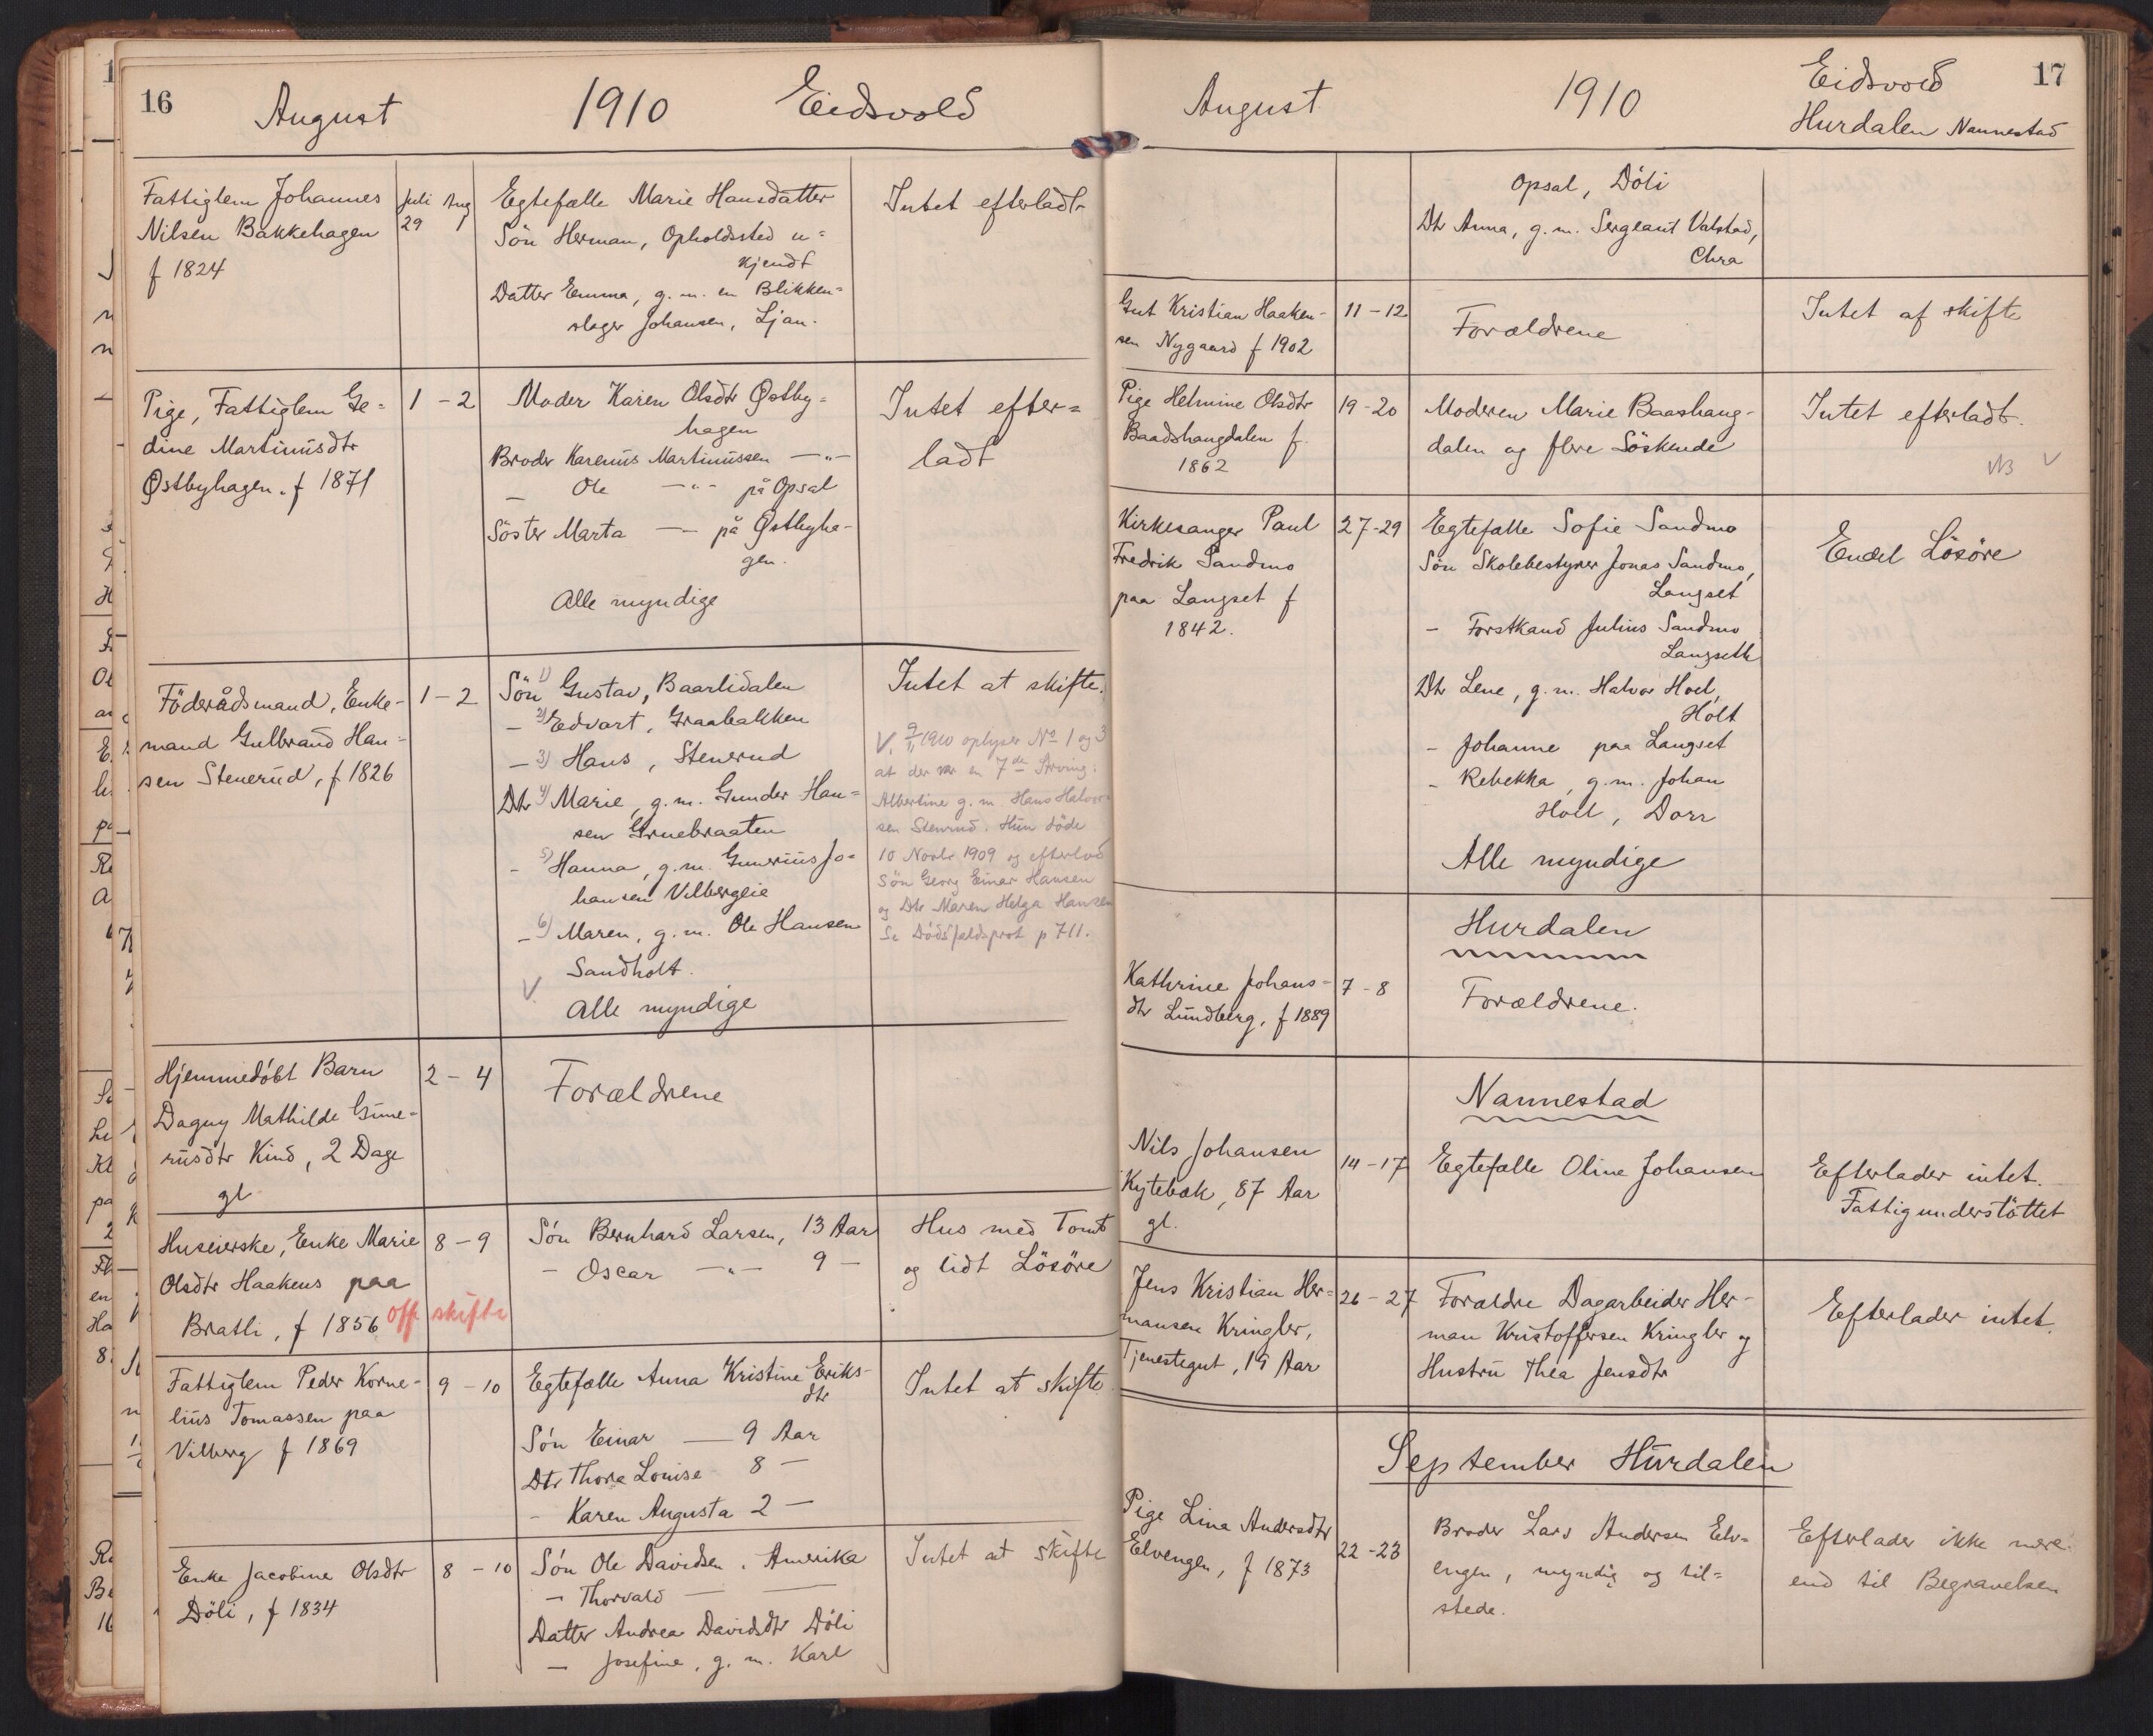 16 August 1910 Eidsvold
Fattiglem Johannes
Nilsen Bakkehagen
f 1824
Juli Aug
29 1
Egtefælle Marie Hansdatter
Sön Herman, Opholdssted u=
kjendt
Datter Emma, g. m. en Blikken=
slager Johansen, Ljan.
Intet efterladt
Pige, Fattiglem Ge=
dine Martinusdtr
Østbyhagen. f 1871
1 - 2
Moder Karen Olsdtr Østby=
hagen
Broder Karenus Martinussen —"—
— Ole —"— på Opsal
Söster Marta — på Østbyha-
gen.
Alle myndige
Intet efter=
ladt
Föderådsmand, Enke-
mand Gulbrand Han=
sen Stenerud, f 1826
1 - 2
Sön 1) Gustav, Baarlidalen
— 2) Edvart, Graabakken
— 3) Hans, Stenerud
Dtr 4) Marie, g. m. Gunder Han=
sen Gruebraaten
- 5) Hanna, g. m. Gunerius Jo=
hansen Vilbergeie
- 6) Maren, g. m. Ole Hansen
Sandholt.
V Alle myndige
Intet at skifte.
V. 9/11 1910 oplyser No 1 og 3
at der var en 7de Arving:
Albertine g. m. Hans Halvor=
sen Stenrud. Hun döde
10 Novbr 1909 og efterlod
Sön Georg Einar Hansen
og Dtr Maren Helga Hansen
Se Dödsfaldsprot p 711.
Hjemmedöbt Barn
Dagny Mathilde Gune=
riusdtr Kind, 2 Dage
gl
2 - 4
Forældrene
Huseierske, Enke Marie
Olsdtr Haakens paa
Bratli, f 1856 off skifte
8 - 9
Sön Bernhard Larsen, 13 Aar
- Oscar —"— 9 —
Hus med Tomt
og lidt Lösöre
Fattiglem Peder Korne-
lius Tomassen paa
Vilberg f 1869
9 - 10
Egtefælle Anna Kristine Eriks-
dtr
Sön Einar — 9 Aar
Dtr Thora Louise 8 —
- Karen Augusta 2 —
Intet at skifte
Enke Jacobine Olsdtr
Döli, f 1834
8 - 10
Sön Ole Davidsen, Amerika
- Thorvald — —
Datter Andrea Davidsdtr Döli
— Josefine, g. m. Karl
Intet at skifte
August 1910 Eidsvold 17
Hurdalen Nannestad
Opsal, Döli
Dtr Anna, g. m. Sergeant Valstad,
Chra
Gut Kristian Haaken-
sen Nygaard f 1902
11 - 12
Forældrene
Intet af skifte
Pige Helmine Olsdtr
Baadshaugdalen f.
1862
19 - 20
Moderen Marie Baashaug-
dalen og flere Söskende
Intet efterladt.
NB V
Kirkesanger Paul
Fredrik Sandmo
paa Langset f
1842.
27 - 29
Egtefælle Sofie Sandmo
Sön Skolebestyrer Jonas Sandmo,
Langset
- Forstkand Julius Sandmo
Langseth
Dtr Lene, g. m. Halvor Hoel,
Holt
- Johanne paa Langset
- Rebekka, g. m. Johan
Holt, Dorr
Alle myndige
Endel Lösöre
Hurdalen
Kathrine Johans-
dtr Lundberg, f 1889
7 - 8
Forældrene.
Nannestad
Nils Johansen
Kytebæk, 87 Aar
gl.
14 - 17
Egtefælle Oline Johansen
Efterlader intet.
Fattigunderstöttet
Jens Kristian Her=
mansen Kringler,
Tjenestegut, 19 Aar
26 - 27
Forældre Dagarbeider Her-
man Kristoffersen Kringler og
Hustru Thea Jensdtr
Efterlader intet.
September Hurdalen
Pige Lina Andersdtr
Elvengen, f 1873
22 - 23
Broder Lars Andersen Elv=
engen, myndig og til=
stede.
Efterlader ikke mere
end til Begravelsen